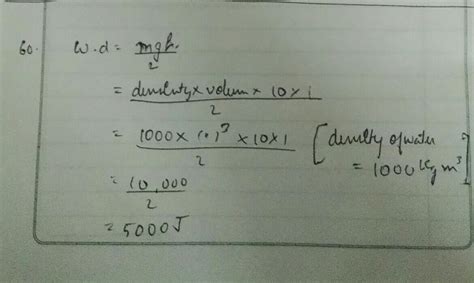 60. W.d = mgh/2
= density x volum x 10 x 1 / 2
= 1000 x (1)³ x 10x1 / 2 [density of water = 1000 kg m³]
= 10,000 / 2
= 5000 J